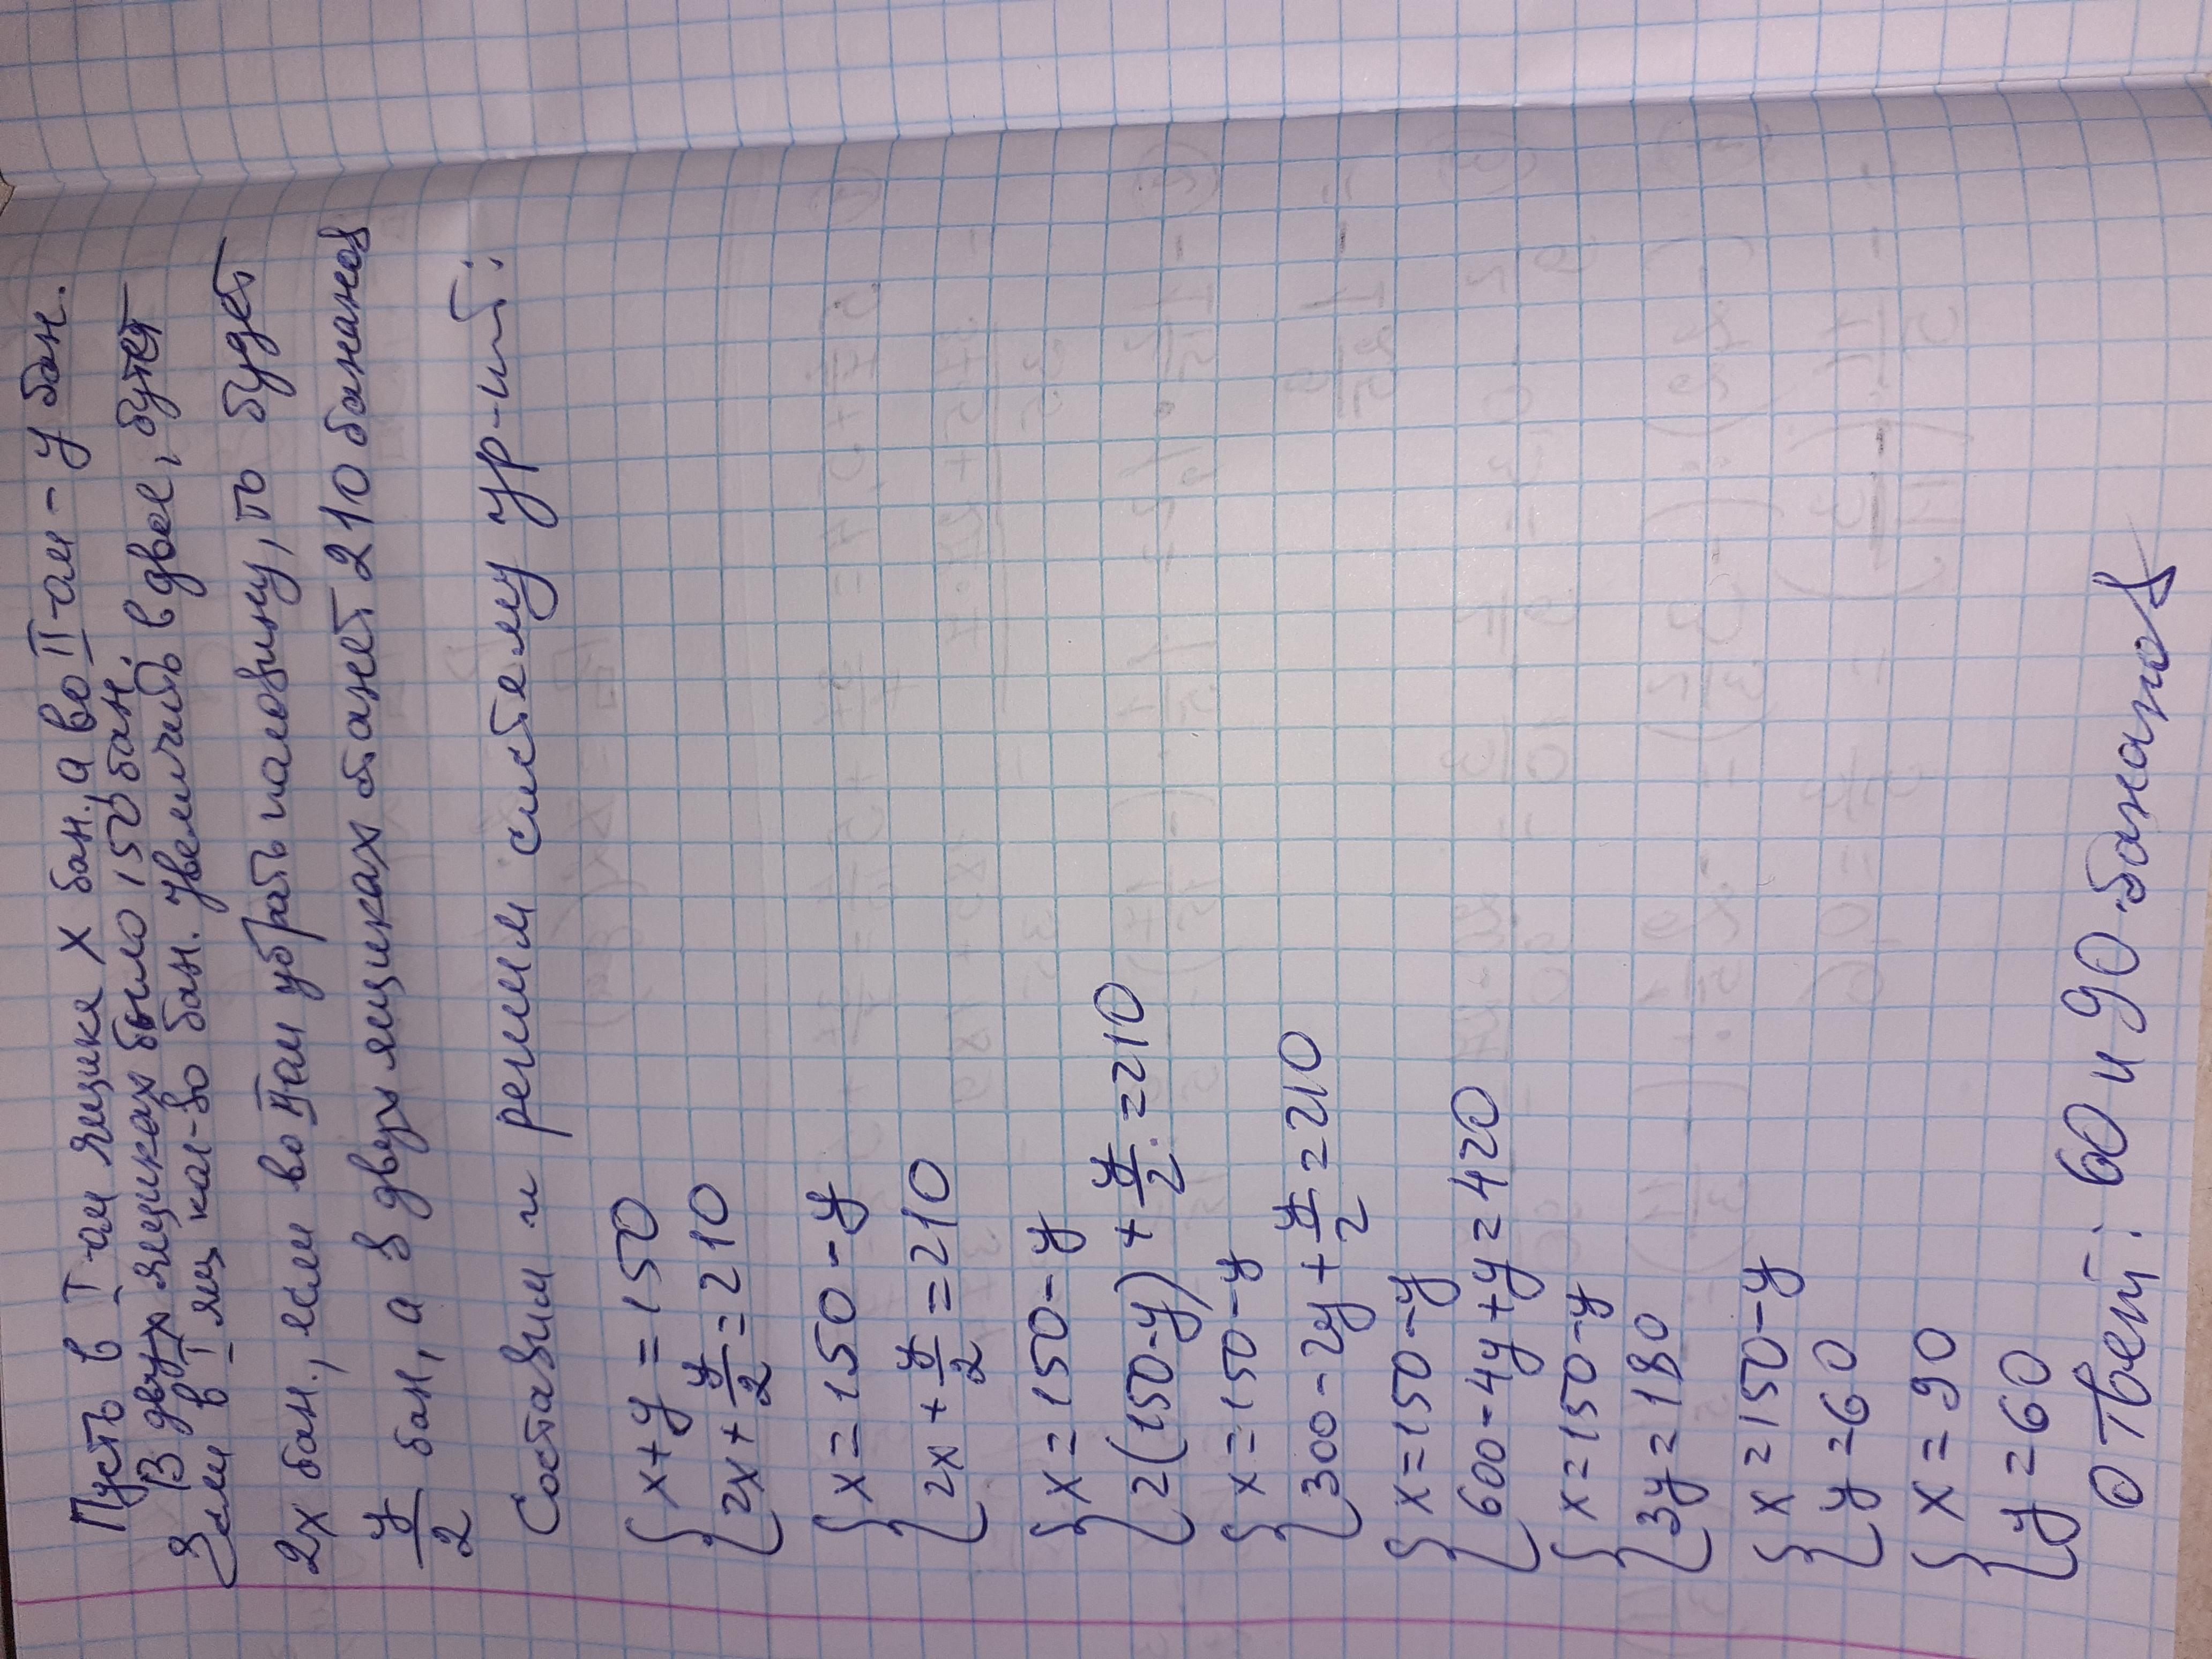 Пусть в I-ом ящике x бан., а во II-ом - y бан.
В двух ящиках было 150 бан.
Если в I ящ кол-во бан. увеличить вдвое, будет
2x бан., если во II ом убрать половину, то будет
y/2 бан, а в двух ящиках станет 210 бананов
Составим и решим систему ур-ний:
{ x+y=150
2x+y/2=210
{ x=150-y
2x+y/2=210
{ x=150-y
2(150-y)+y/2=210
{ x=150-y
300-2y+y/2=210
{ x=150-y
600-4y+y=420
{ x=150-y
3y=180
{ x=150-y
y=60
{ x=90
y=60
Ответ: 60 и 90 бананов